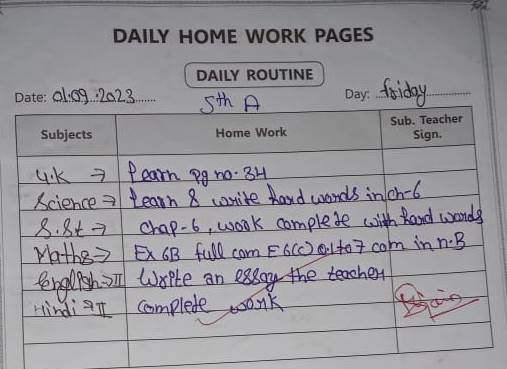 DAILY HOME WORK PAGES
DAILY ROUTINE
Date: 01.09.2023 5th A Day: friday
Subjects Home Work Sub. Teacher Sign.
G.K → Learn pg no. 34
Science → Learn & write hard words in ch-6
S.St → Chap-6, work complete with hard words
Maths → Ex 6B full com E6(c) Q.1 to 7 com in n.B
English → II Write an essay the teacher
Hindi → II Complete work